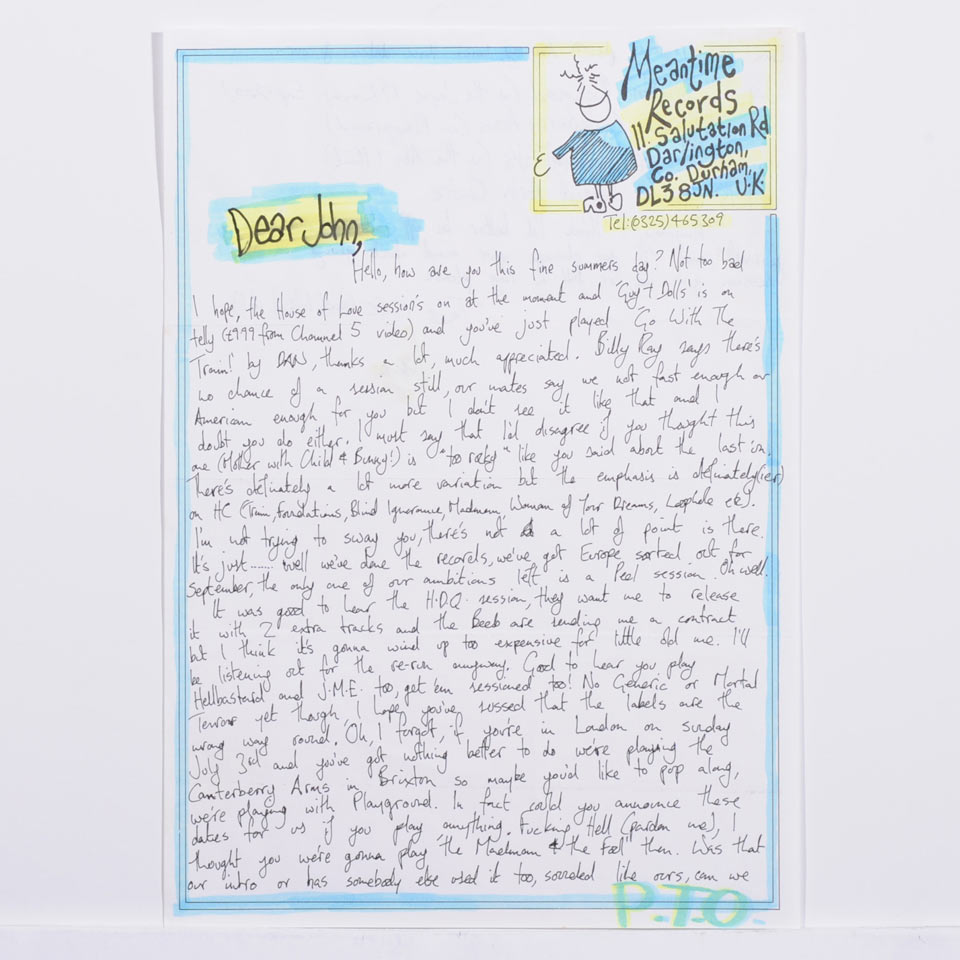 Meantime
Records
11. Salutation Rd
Darlington,
Co. Durham,
DL3 8JN. U.K.
Tel:(0325)465309
Dear John,
Hello, how are you this fine summers day? Not too bad
I hope, the House of Love session's on at the moment and 'Guys + Dolls' is on
telly (£9.99 from Channel 5 video) and you've just played 'Go With The
Train!' by DAN, thanks a lot, much appreciated. Billy Ray says there's
no chance of a session still, our mates say we not fast enough or
American enough for you but I don't see it like that and I
doubt you do either. I must say that I'd disagree if you thought this
one (Mother with Child & Bunny!) is "too rocky" like you said about the last 'un.
There's definately a lot more variation but the emphasis is definately(ier)
on HC (Train, Foundations, Blind Ignorance, Madman, Woman of Your Dreams, Loophole etc).
I'm not trying to sway you, there's not a lot of point is there.
It's just....... well we've done the records, we've got Europe sorted out for
September, the only one of our ambitions left is a Peel session. Oh well.
It was good to hear the H.D.Q. session, they want me to release
it with 2 extra tracks and the Beeb are sending me a contract
but I think it's gonna wind up too expensive for little old me. I'll
be listening out for the re-run anyway. Good to hear you play
Hellbastard and J.M.E. too, get 'em sessioned too! No Generic or Mortal
Terror yet though, I hope you've sussed that the labels are the
wrong way round. Oh, I forgot, if you're in London on sunday
July 3rd and you've got nothing better to do we're playing the
Canterberry Arms in Brixton so maybe you'd like to pop along,
we're playing with Playground. In fact could you announce these
dates for us if you play anything. Fucking Hell (pardon me), I
thought you we're gonna play "the Madman & the Fool" then. Was that
our intro or has somebody else used it too, sounded like ours, can we
P.T.O.